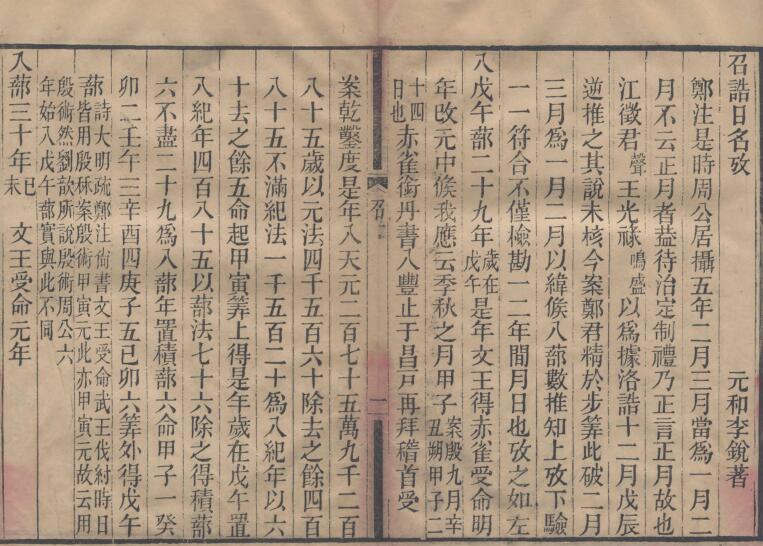 召誥日名攷
元和李銳著
鄭注是時周公居攝五年二月三月當爲一月二
月不云正月者葢待治定制禮乃正言正月故也
江徵君聲王光祿鳴盛以爲據洛誥十二月戊辰
逆推之其說未核今案鄭君精於步筭此破二月
三月爲一月二月以緯候入蔀數推知上攷下驗
一一符合不僅檢勘一二年閒月日也攷之如左
入戊午蔀二十九年歲在戊午是年文王得赤雀受命明
年改元中候我應云季秋之月甲子案殷九月辛丑朔甲子二
十四日也赤雀銜丹書入豐止于昌戸再拜稽首受
召
一
案乾鑿度是年入天元二百七十五萬九千二百
八十五歲以元法四千五百六十除去之餘四百
八十五不滿紀法一千五百二十爲入紀年以六
十去之餘五命起甲寅筭上得是年歲在戊午置
入紀年四百八十五以蔀法七十六除之得積蔀
六不盡二十九爲入蔀年置積蔀六命甲子一癸
卯二壬午三辛酉四庚子五己卯六筭外得戊午
蔀詩大明疏鄭注尙書文王受命武王伐紂時日
皆用殷秝案殷術甲寅元此亦甲寅元故云用
殷術然劉歆所說殷術周公六
年始入戊午蔀實與此不同
入蔀三十年己未文王受命元年